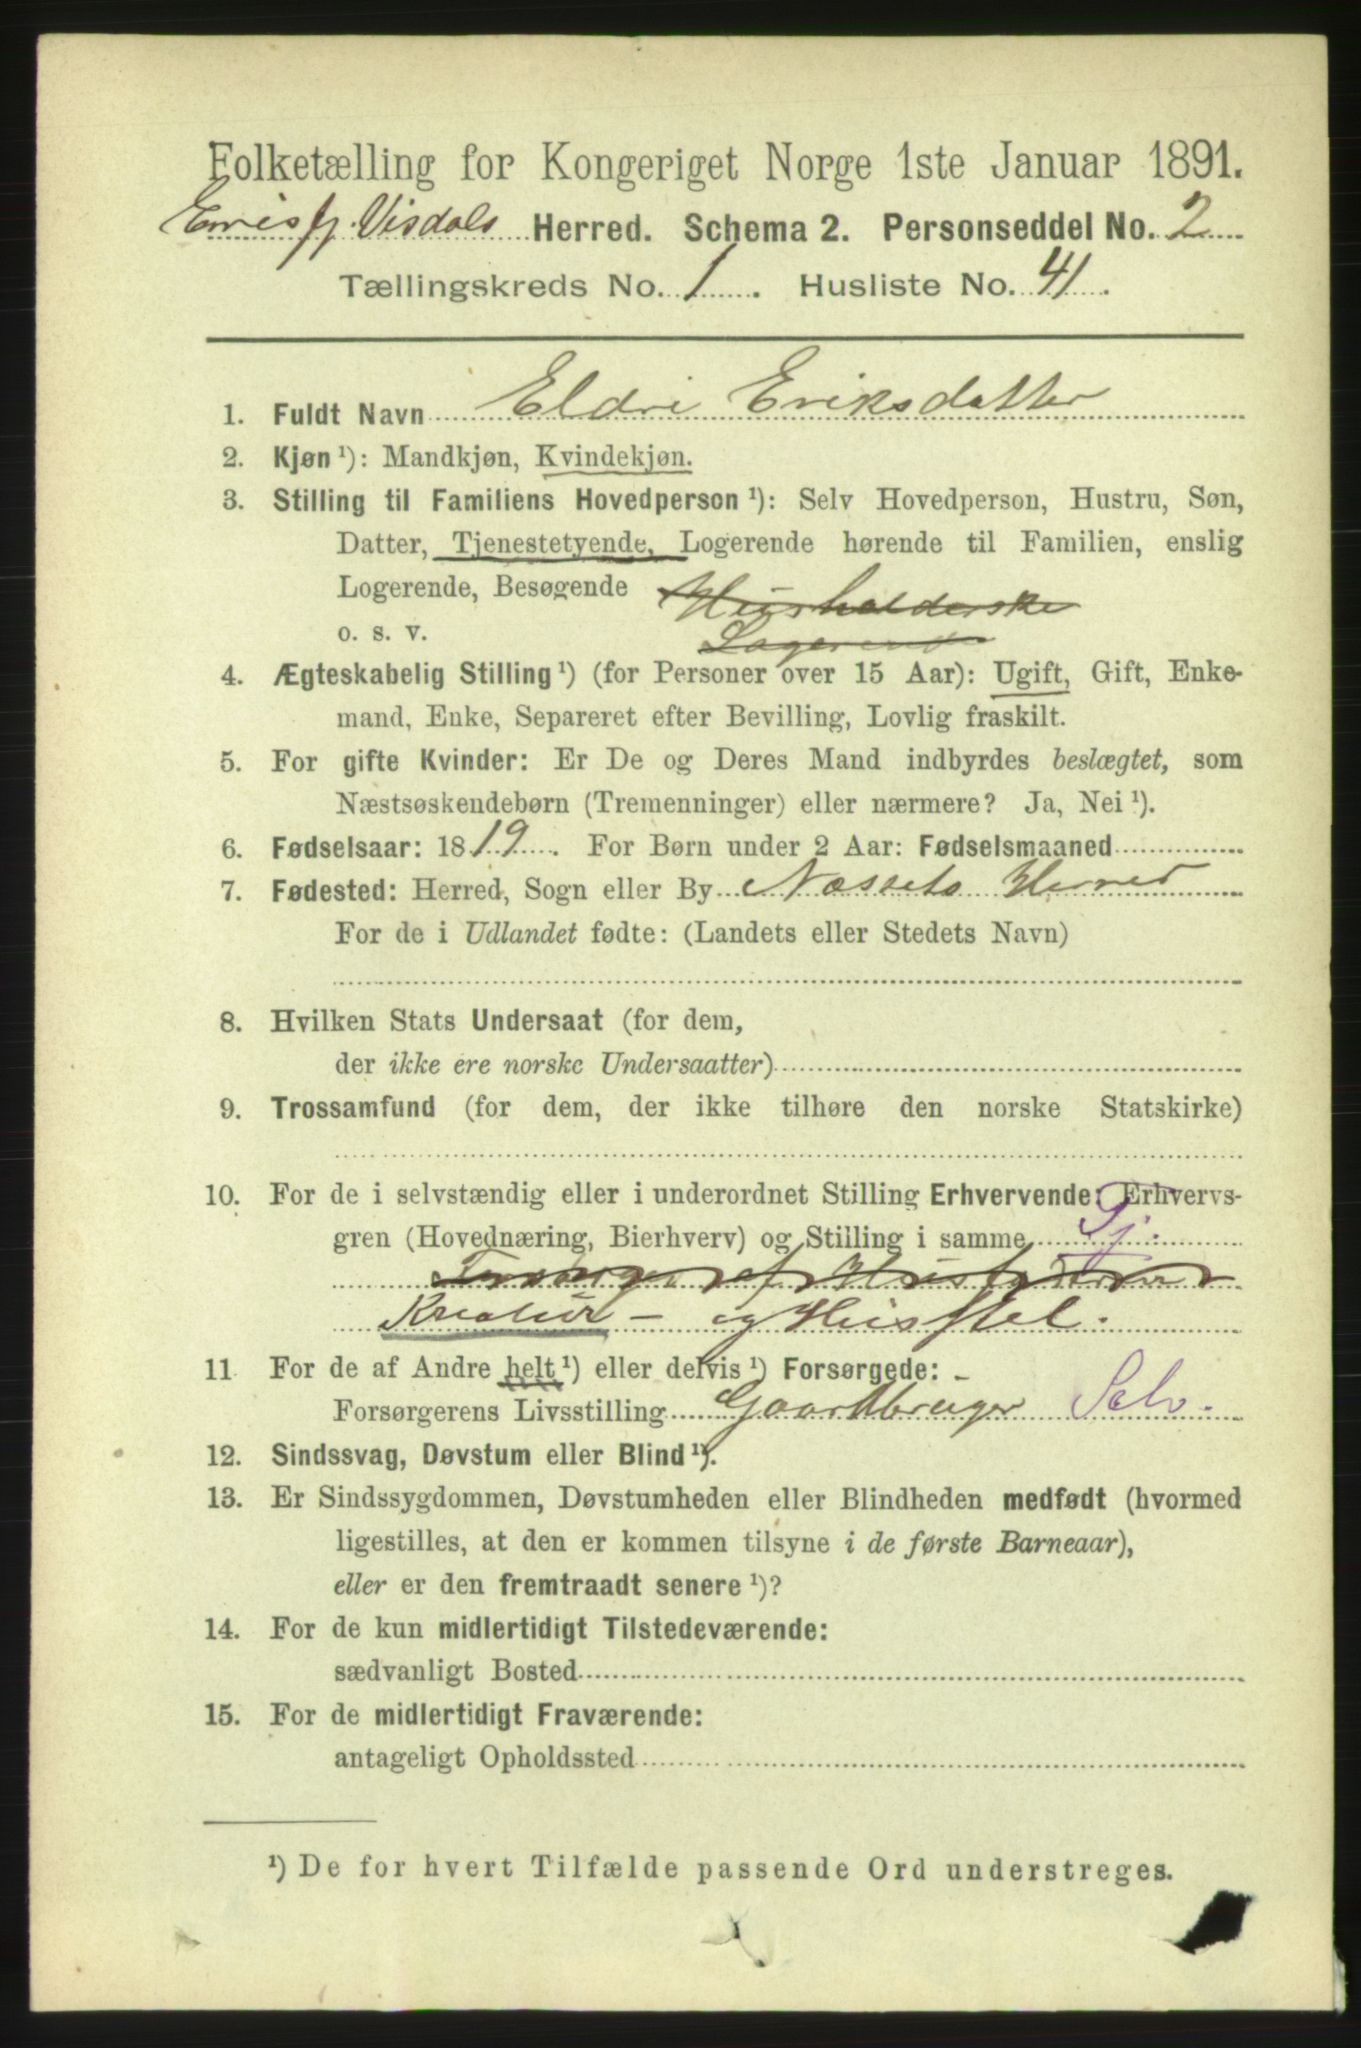 Folketælling for Kongeriget Norge 1ste Januar 1891.
Erisfj. Visdals Herred. Schema 2. Personseddel No. 2
Tællingskreds No. 1. Husliste No. 41.
1. Fuldt Navn Eldri Eriksdatter
2. Kjøn ¹): Mandkjøn, Kvindekjøn.
3. Stilling til Familiens Hovedperson ¹): Selv Hovedperson, Hustru, Søn,
Datter, Tjenestetyende, Logerende hørende til Familien, enslig
Logerende, Besøgende Husholderske
o. s. v. Logerende
4. Ægteskabelig Stilling ¹) (for Personer over 15 Aar): Ugift, Gift, Enke-
mand, Enke, Separeret efter Bevilling, Lovlig fraskilt.
5. For gifte Kvinder: Er De og Deres Mand indbyrdes beslægtet, som
Næstsøskendebørn (Tremenninger) eller nærmere? Ja, Nei ¹).
6. Fødselsaar: 1819. For Børn under 2 Aar: Fødselsmaaned
7. Fødested: Herred, Sogn eller By Næssets Herred
For de i Udlandet fødte: (Landets eller Stedets Navn)
8. Hvilken Stats Undersaat (for dem,
der ikke ere norske Undersaatter)
9. Trossamfund (for dem, der ikke tilhøre den norske Statskirke)
10. For de i selvstændig eller i underordnet Stilling Erhvervende: Erhvervs-
gren (Hovednæring, Bierhverv) og Stilling i samme Tj.
af
Kreatur- og Husstel.
11 For de af Andre helt ¹) eller delvis ¹) Forsørgede: -
Forsørgerens Livsstilling Gaardbruger Selv.
12. Sindssvag, Døvstum eller Blind ¹).
13. Er Sindssygdommen, Døvstumheden eller Blindheden medfødt (hvormed
ligestilles, at den er kommen tilsyne i de første Barneaar),
eller er den fremtraadt senere ¹)?
14. For de kun midlertidigt Tilstedeværende:
sædvanligt Bosted
15. For de midlertidigt Fraværende:
antageligt Opholdssted
¹) De for hvert Tilfælde passende Ord understreges.